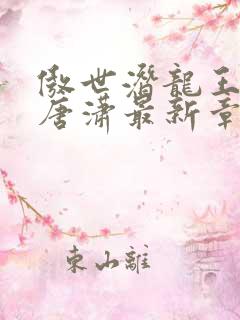 傲世潛龍王
唐瀟最新章
東山離